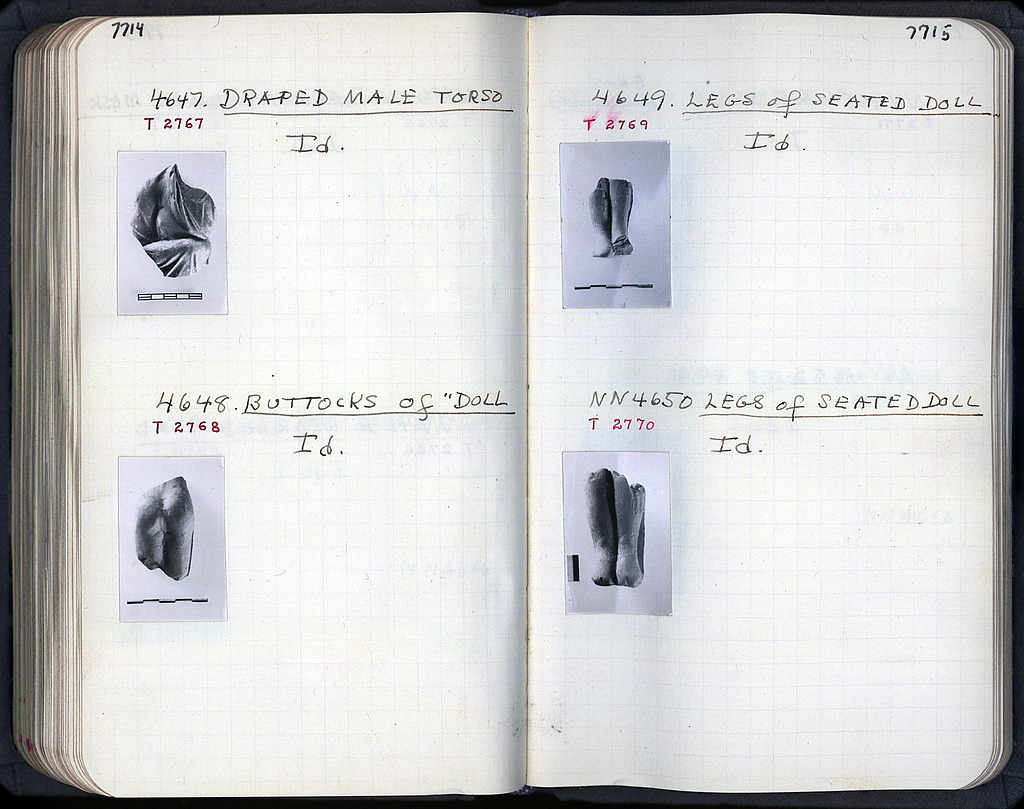 7714
4647. DRAPED MALE TORSO
T 2767
Id.
4648. BUTTOCKS of "DOLL
T 2768
Id.
7715
4649. LEGS of SEATED DOLL
T 2769
Id.
NN4650 LEGS of SEATED DOLL
T 2770
Id.